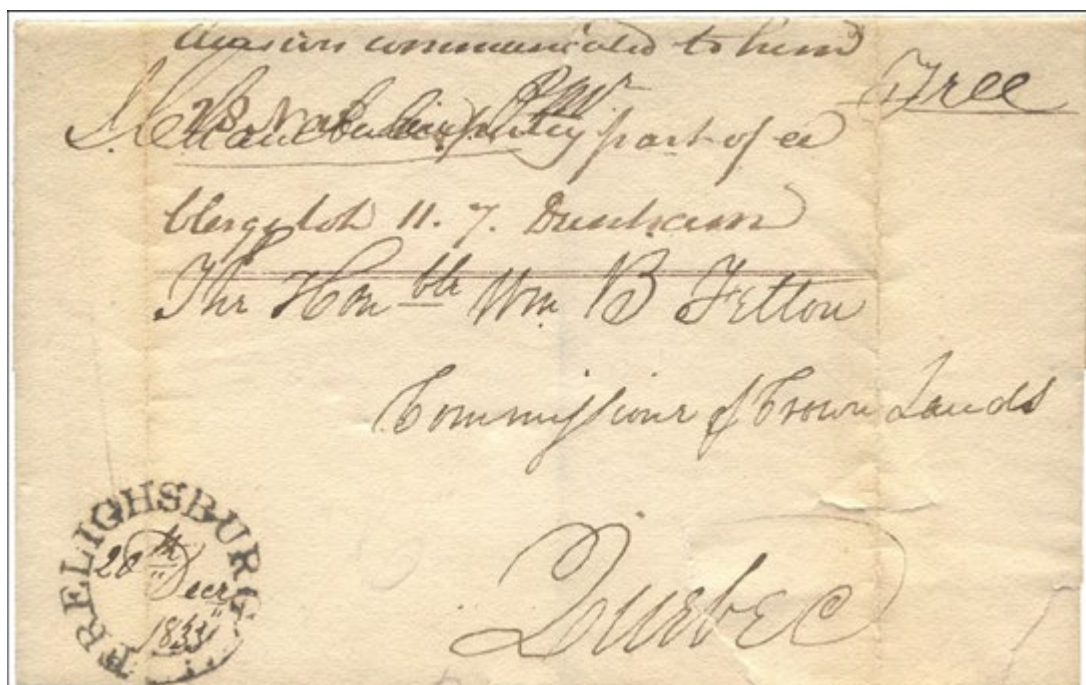 communicated to him
Free
part of a
Clergy lot 11. 7. Dunham
The Honble Wm B Felton
Commissioner of Crown Lands
Quebec
FRELIGHSBURG
28th Decr
1833